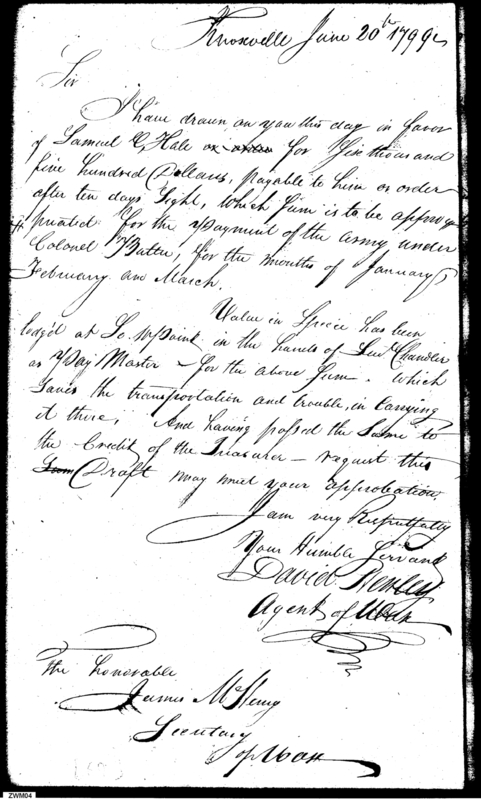 Knoxville June 20th 1799
Sir
I have drawn on you this day in favor
of Samuel C. Hale or order for Six thousand
five hundred Dollars, payable to him or order
after ten days Sight, which sum is to be appro
priated for the payment of the army under
Colonel Butler, for the months of January
February an March.
Value in Specie has been
lodg'd at So. W. Point in the hands of Chandler
as Pay Master for the above sum. Which
saves the transportation and trouble, in carrying
it there, And having passed the Same to
the Credit of the Treasurer request this
Draft may meet your approbation.
I am very Respectfully
Your Humble Servant
David Henley
Agent of War
The Honorable
James McHenry
Secretary
of War
ZWM04